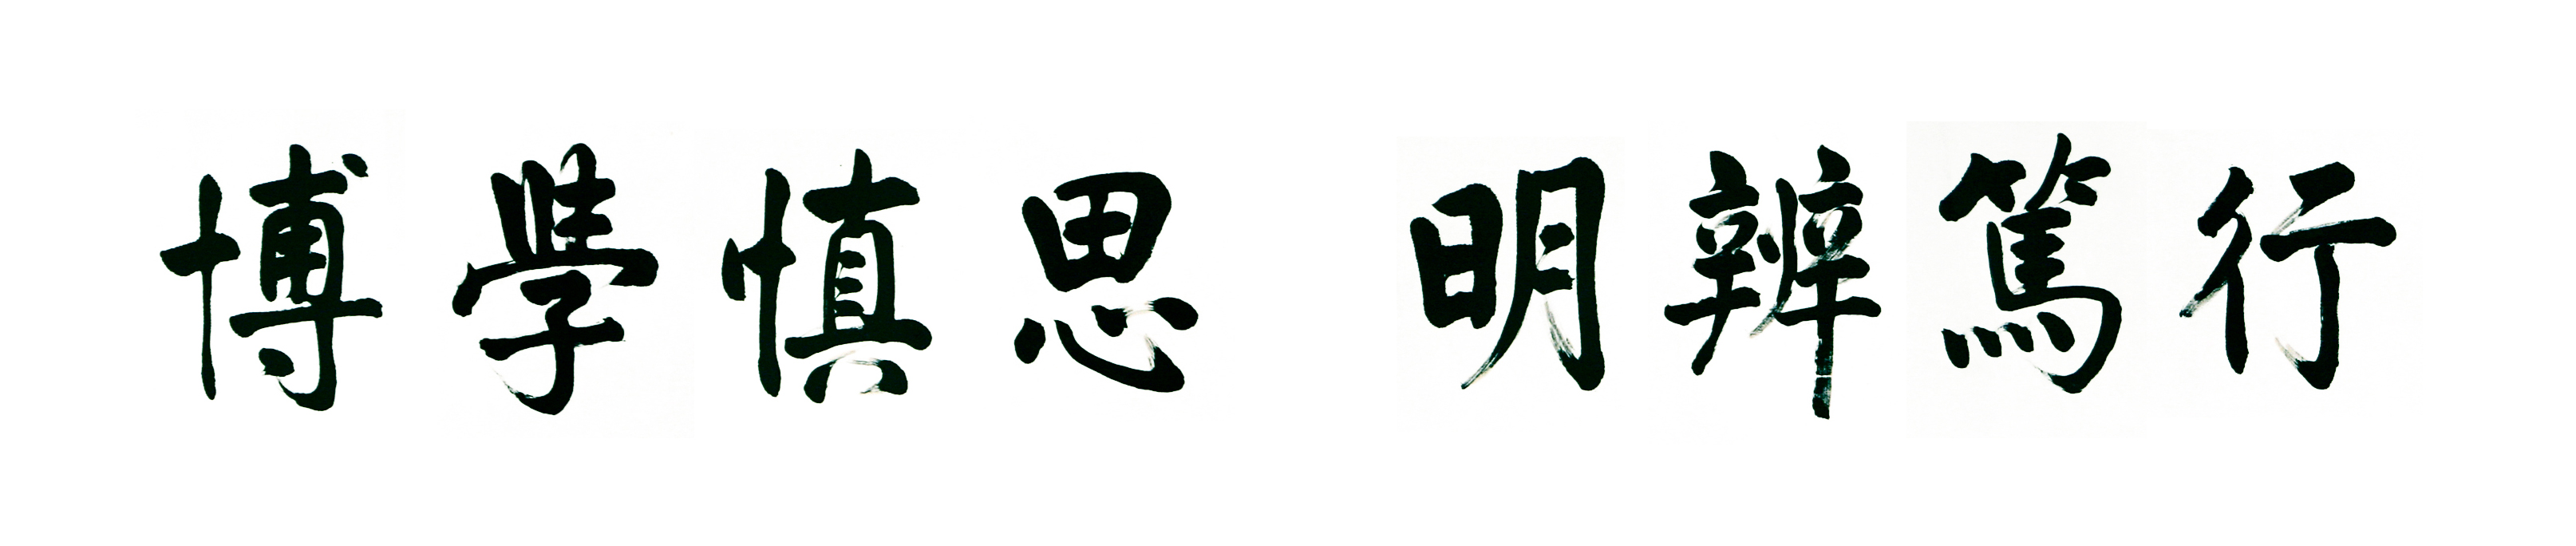 博學慎思 明辨篤行